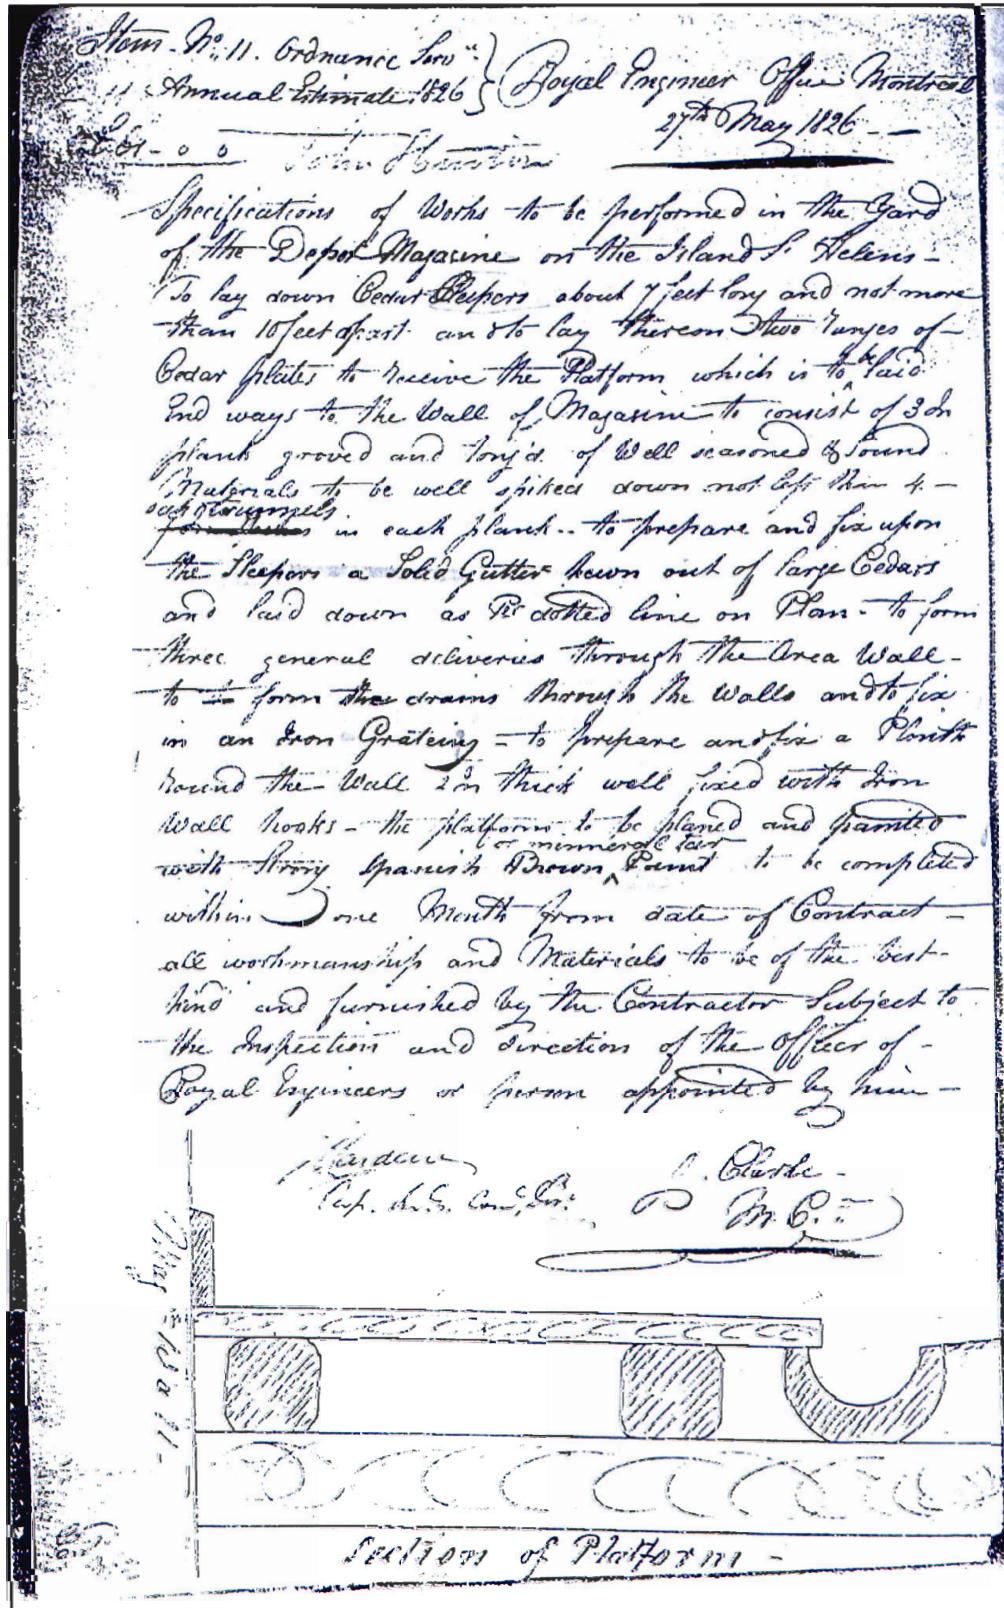 Item Nº 11. Ordnance Serv.ᶜᵉ
" " Annual Estimate. 1826
Royal Engineer Office Montreal
27th May 1826
Specifications of Works to be performed in the Yard
of the Depot Magazine on the Island St Helens -
To lay down Cedar Sleepers about 7 feet long and not more
than 10 feet apart and to lay thereon two ranges of -
Cedar plates to receive the Platform which is to be laid
End ways to the Wall of Magazine to consist of 3 In
plank groved and tong'd. of Well seasoned & Sound
Materials to be well spiked down not less than 4 -
in each plank - to prepare and fix upon
the Sleepers a Solid Gutter hewn out of large Cedars
and laid down as Pr dotted line on Plan - to form
three general deliveries through the Area Wall -
to form the drains through the Walls and to fix
in an Iron Grateing - to prepare and fix a Plinth
round the Wall 2 In thick well fixed with Iron
Wall hooks - the platform to be planed and painted
(or minneral tar
with Strong Spanish Brown Paint to be completed
within one Month from date of Contract -
all workmanship and Materials to be of the best
kind and furnished by the Contractor Subject to
the Inspection and direction of the Officer of -
Royal Engineers or person appointed by him -
Clarke -
Mag Wall -
Section of Platform -